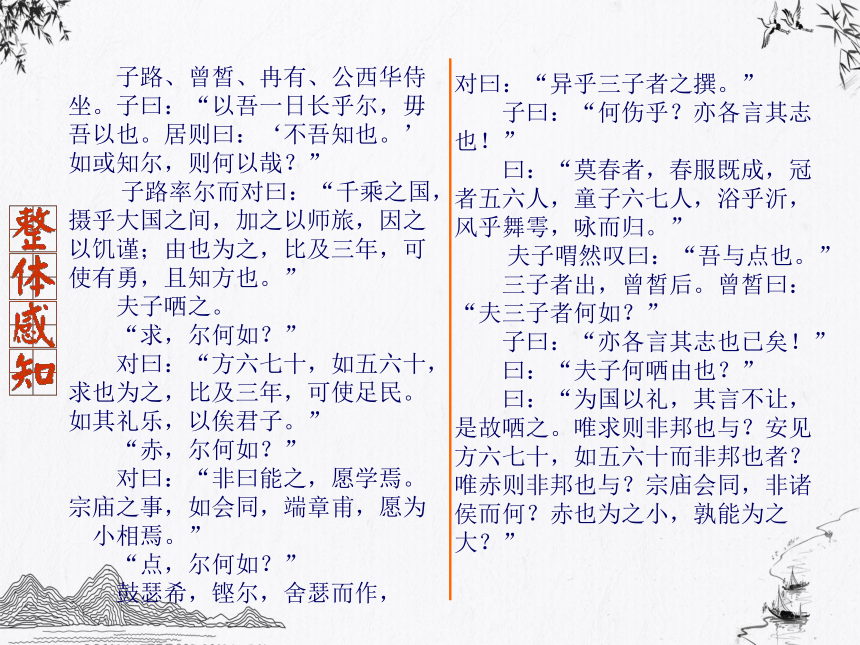 整体感知
子路、曾皙、冉有、公西华侍
坐。子曰：“以吾一日长乎尔，毋
吾以也。居则曰：‘不吾知也。’
如或知尔，则何以哉？”
子路率尔而对曰：“千乘之国，
摄乎大国之间，加之以师旅，因之
以饥谨；由也为之，比及三年，可
使有勇，且知方也。”
夫子哂之。
“求，尔何如？”
对曰：“方六七十，如五六十，
求也为之，比及三年，可使足民。
如其礼乐，以俟君子。”
“赤，尔何如？”
对曰：“非曰能之，愿学焉。
宗庙之事，如会同，端章甫，愿为
小相焉。”
“点，尔何如？”
鼓瑟希，铿尔，舍瑟而作，
对曰：“异乎三子者之撰。”
子曰：“何伤乎？亦各言其志
也！”
曰：“莫春者，春服既成，冠
者五六人，童子六七人，浴乎沂，
风乎舞雩，咏而归。”
夫子喟然叹曰：“吾与点也。”
三子者出，曾皙后。曾皙曰：
“夫三子者何如？”
子曰：“亦各言其志也已矣！”
曰：“夫子何哂由也？”
曰：“为国以礼，其言不让，
是故哂之。唯求则非邦也与？安见
方六七十，如五六十而非邦也者？
唯赤则非邦也与？宗庙会同，非诸
侯而何？赤也为之小，孰能为之
大？”